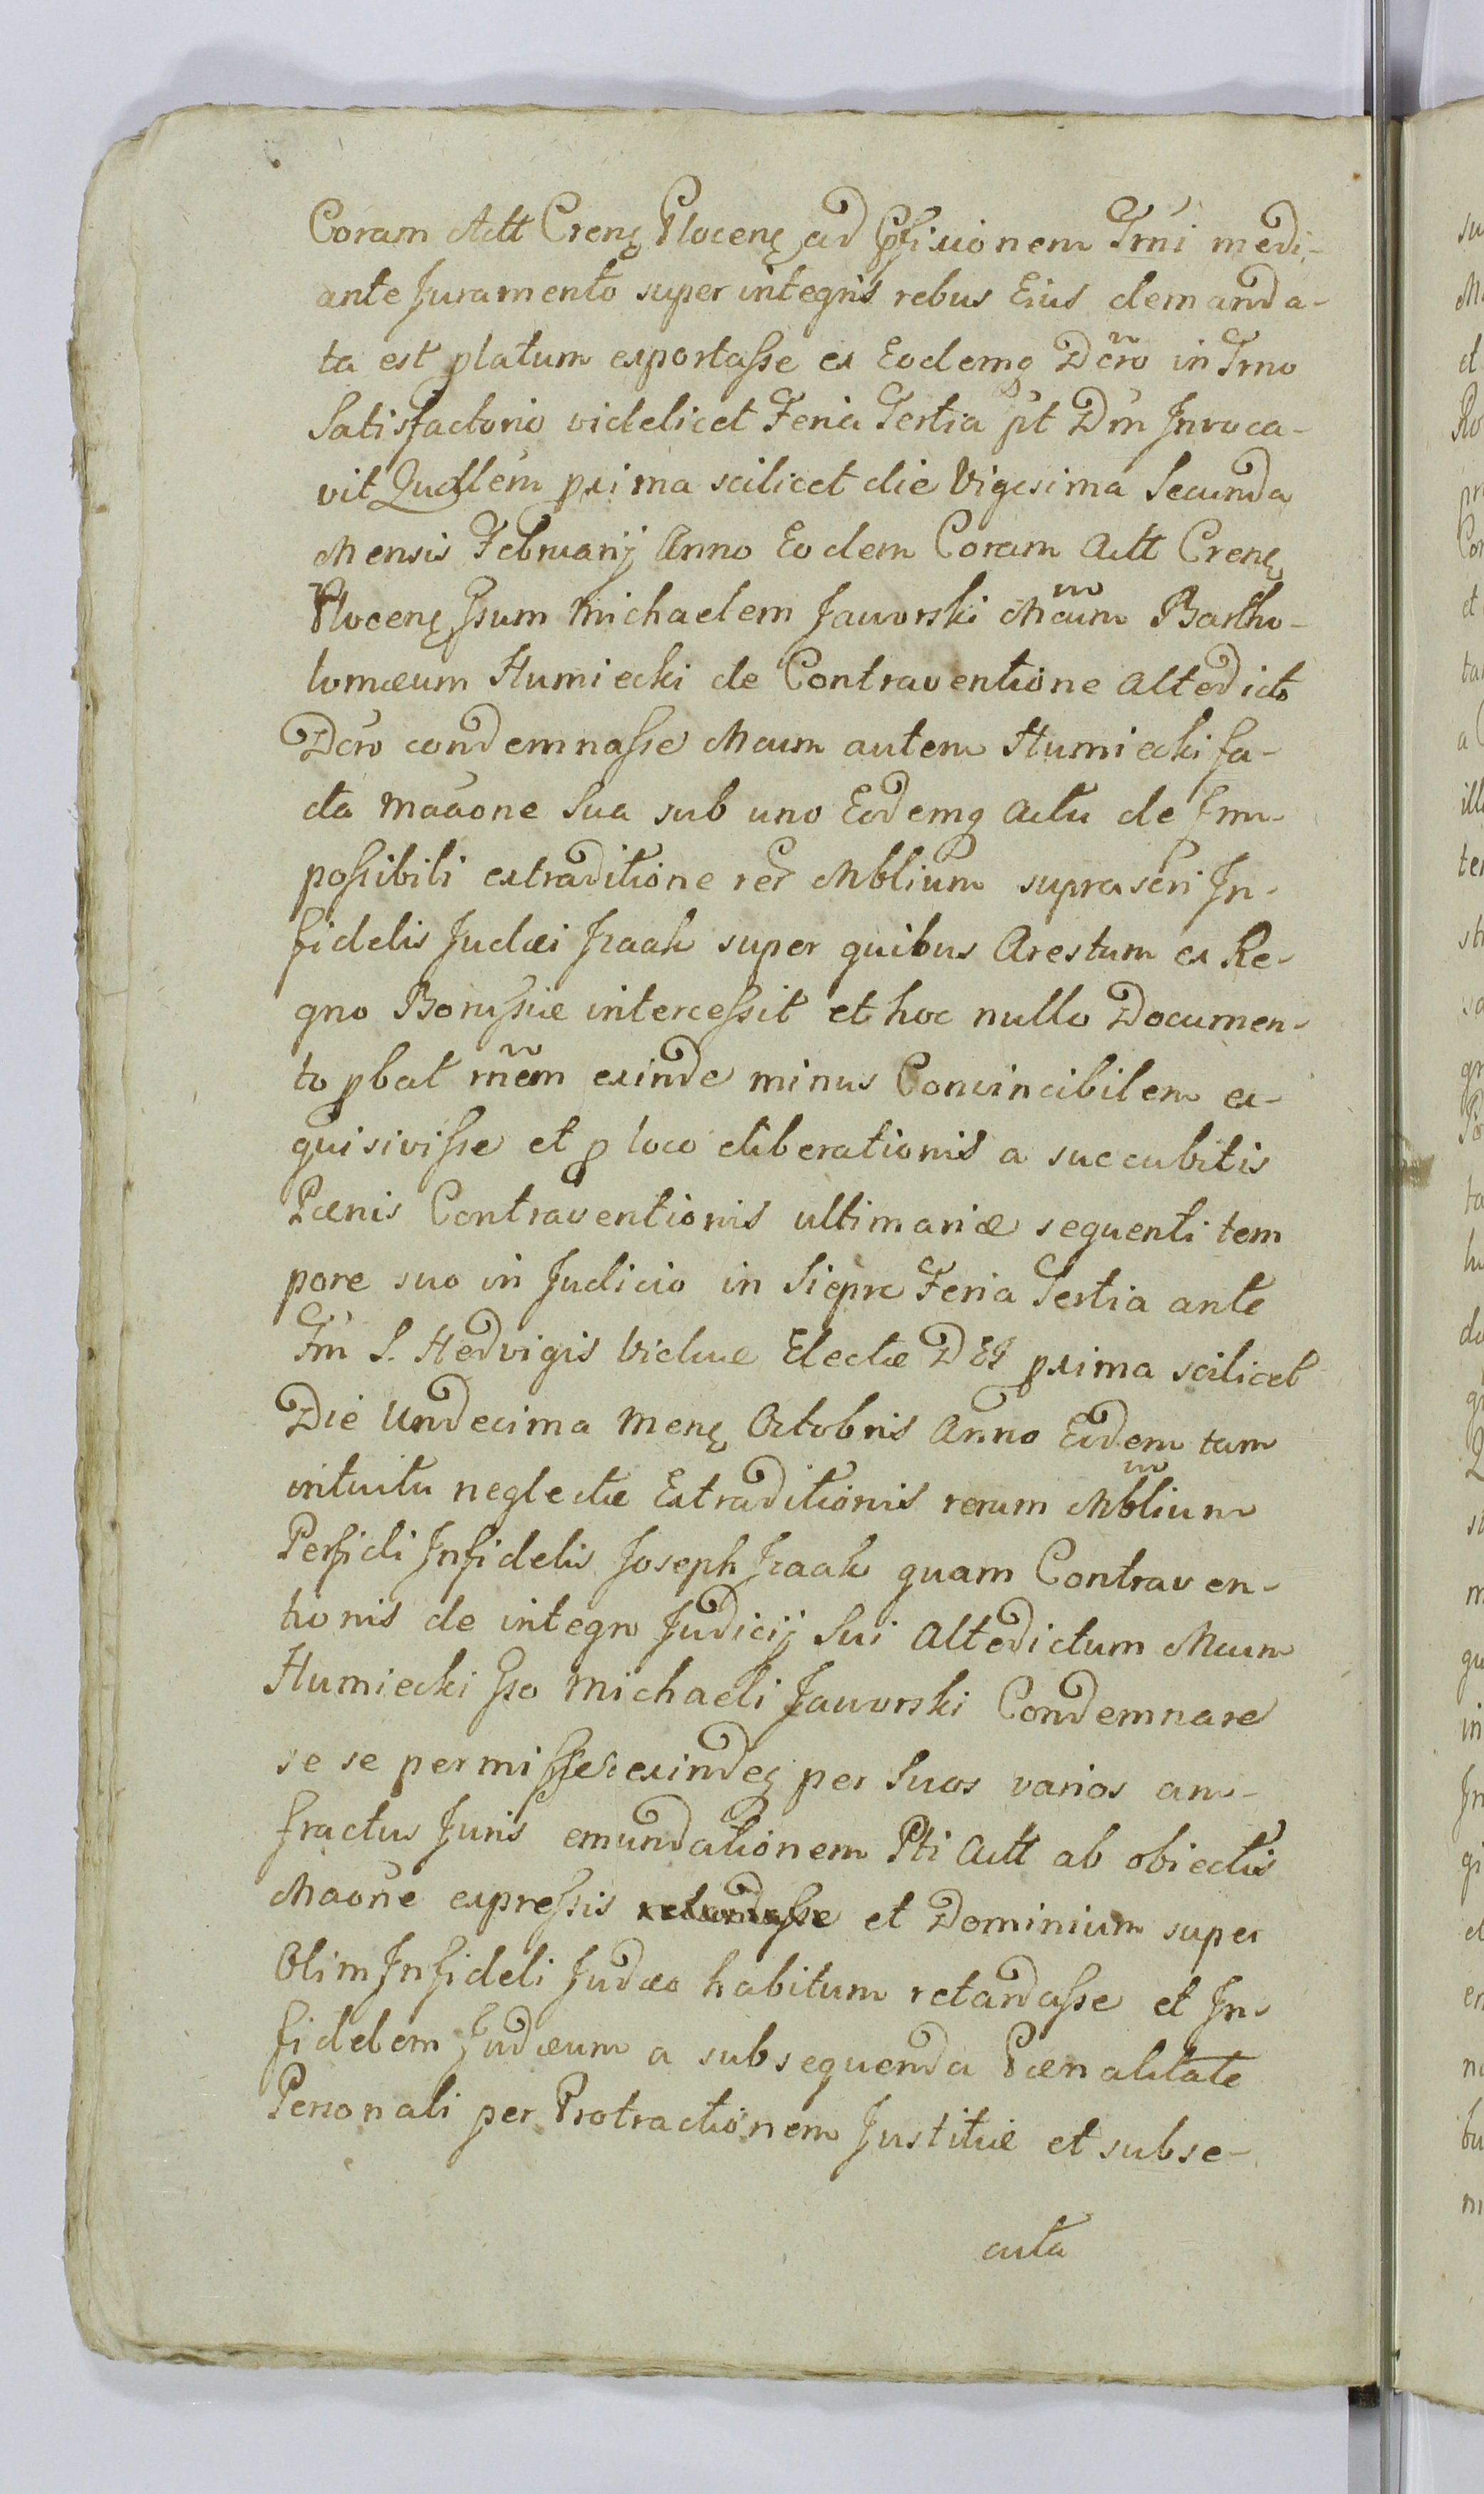 Coram Actt Crenę Plocenę ad Pfixionem Trni medi-
ante Juramento super integris rebus Eius demanda-
ta est platum exportasse ex Eodemq Dcro in Trno
Satisfactorio videlicet Feria Tertia pt Dm Invoca-
vit Qudlem pxima scilicet die Vigesima Secunda
Mensis Februarij Anno Eodem Coram Actt Crenę
Plocenę Gsum Michaelem Jaworski Mcum Bartho-
lomæum Humiecki de Contraventione altedicto
Dcro condemnasse Mcum autem Humiecki fa-
cta Maaone Sua sub uno Eodemq Actu de Im-
possibili extraditione rer Mblium suprascri In-
fidelis Judæi Izaak super quibus Arestum ex Re-
gno Borussiæ intercessit et hoc nullo Documen-
to pbat rnem exinde minus Convincibilem ex-
quisivisse et p loco eliberationis a succubitis
Pænis Contraventionis ultimariæ sequenti tem
pore suo in Judicio in Siepre Feria Tertia ante
Fm S. Hedvigis Viduæ Electæ DEI pxima scilicet
Die Undecima Menę Octobris Anno Eodem tam
intuitu neglectæ Extraditionis rerum Mblium
Perfidi Infidelis Joseph Izaak quam Contraven-
tionis de integro Judicij Sui Altedictum Mcum
Humiecki Gso Michaeli Jaworski Condemnare
se se permisisse exindeq per Suos varios am-
fractus Juris emundationem Pti Actt ab obiectis
Maone expressis et Dominium super
Olim Infideli Judæo habitum retardasse et In-
fidelem Judæum a subsequenda Pænalitate
Personali per Protractionem Justitiæ et subse-
cuta